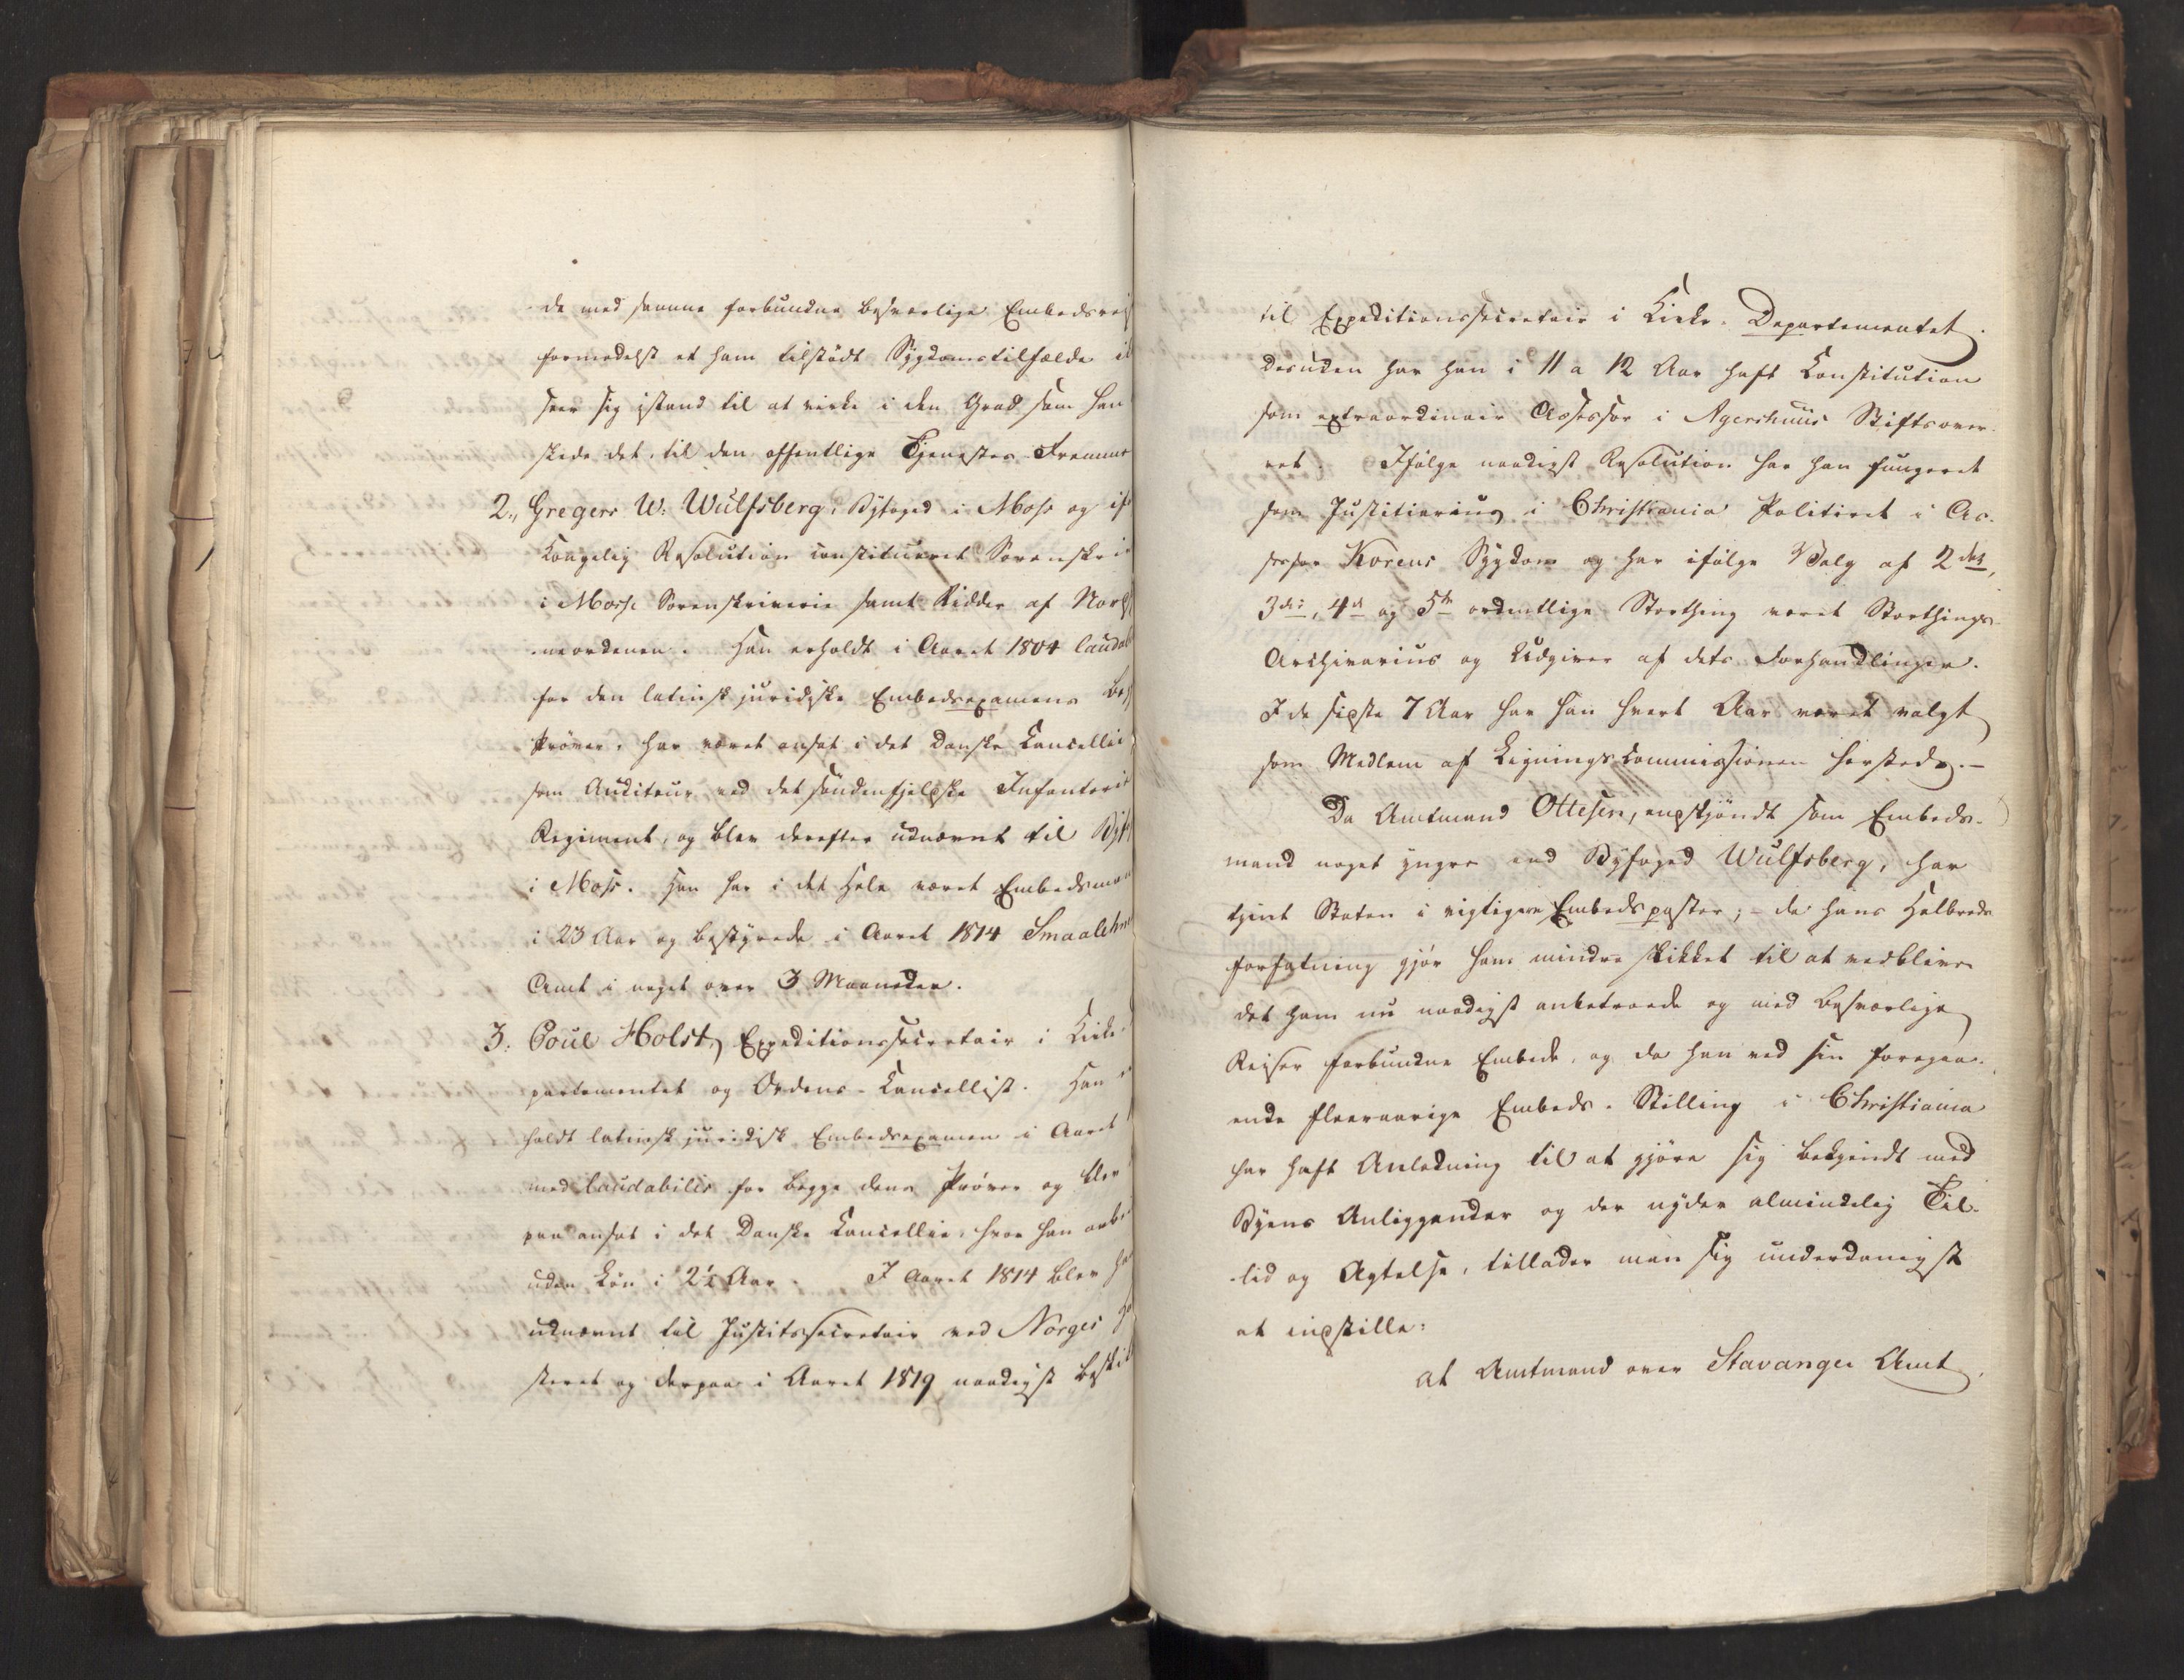 de med samme forbundne besværlige Embedsrei
formedelst et ham tilstødt Sygdomstilfælde ik
seer sig istand til at virke i den Grad som han
skede det, til den offentlige Tjenestes Fremme
2., Gregers W: Wulfsberg, Byfoged i Moss og if
Kongelig Resolution constitueret Sorenskri
i Mosse Sorenskriverie samt Ridder af Nords
neordenen. Han erholdt i Aaret 1804 laudab
for den latinsk juridiske Embedsexamens beg
Prøver, har været ansat i det danske Cancellie
som Auditeur ved det søndenfjeldske Infanterie
Regiment, og blev derefter udnævnt til Byf
i Moss. Han har i det Hele været Embedsman
i 23 Aar og bestyrede i Aaret 1814 Smaalehne
Amt i noget over 3 Maaneder.
3. Poul Holst, Expeditionssecretair i Kirke
partementet og Ordens-Cancellist. Han e
holdt latinsk juridisk Embedsexamen i Aaret
med laudabilis for begge dens Prøver og blev
paa ansat i det Danske Cancellie, hvor han arbei
uden Løn i 2½ Aar. I Aaret 1814 blev ha
udnævnt til Justitssecretair ved Norges Hø
steret og derpaa i Aaret 1819 naadigst beski
til Expeditionssecretair i Kirke-Departementet.
Desuden har han i 11 a 12 Aar haft Constitution
som extraordinair Assessor i Agershuus Stiftsover-
ret. Ifølge naadigst Resolution har han fungeret
som Justitiarius i Christiania Politiret i As-
sessor Korens Sygdom og har ifølge Valg af 2det,
3die, 4de og 5te ordentlige Storthing været Storthings-
Archivarius og Udgiver af dets Forhandlinger.
I de sidste 7 Aar har han hvert Aar været valgt
som Medlem af Ligningscommissionen hersteds.-
Da Amtmand Ottesen, endskjøndt som Embeds-
mand noget yngre end Byfoged Wulfsberg, har
tjent Staten i vigtigere Embedsposter; - da hans Helbreds
forfatning gjør ham mindre skikket til at vedblive
det ham nu naadigst anbetroede og med besværlige
Reiser forbundne Embede, og da han ved sin foregaa-
ende fleeraarige Embeds-Stilling i Christiania
har haft Anledning til at gjøre sig bekjendt med
Byens Anliggender og der nyder almindelig Til-
lid og Agtelse, tillader man sig underdanigst
at indstille:
at Amtmand over Stavanger Amt,